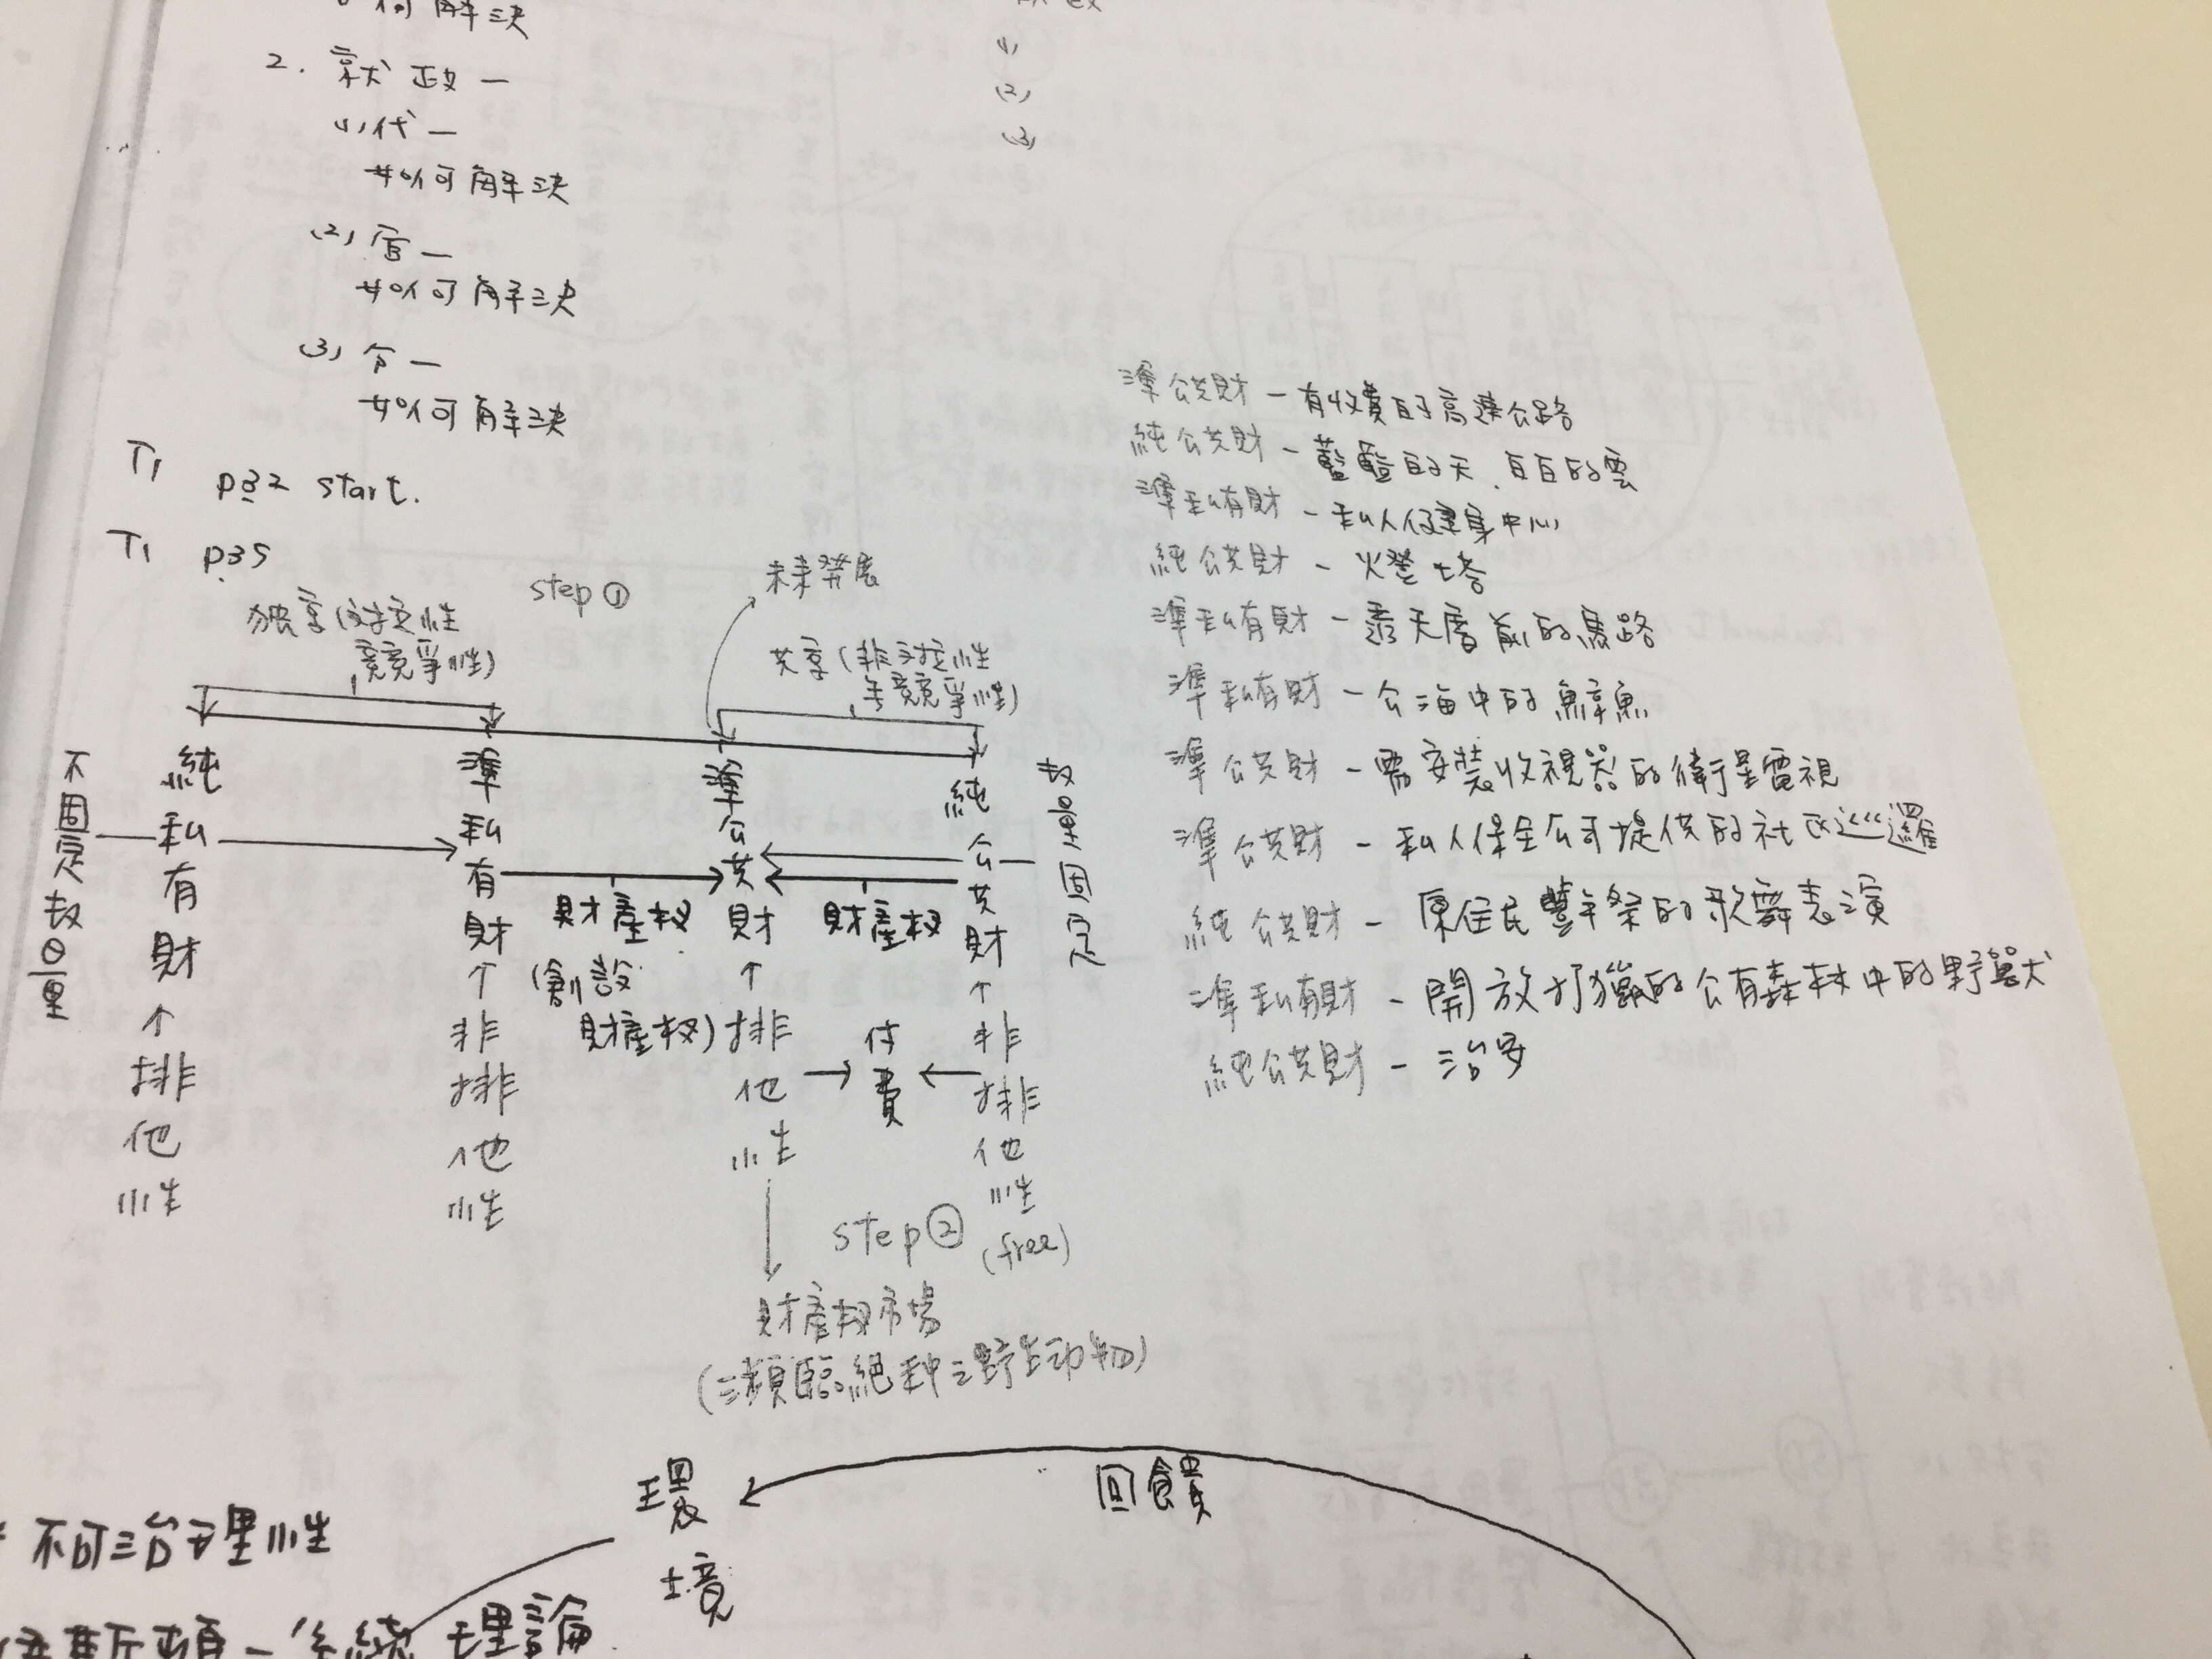 何解決
2. 就政一
(1) 代一
如何解決
(2) 官一
如何解決
(3) 分一
如何解決
T1 p32 start.
T1 p35
(1)
(2)
(3)
step ①
未來發展
獨享(對抗性
競爭性)
共享(非對抗性
無競爭性)
不固定數量
純私有財
↑
排他性
準私有財
↑
非排他性
財產權
(創設
財產權)
準公共財
↑
排他性
財產權
付費
純公共財
↑
非排他性
(free)
數量固定
step ②
財產權市場
(瀕臨絕种之野生动物)
準公共財 - 有收費的高速公路
純公共財 - 藍藍的天、白白的雲
準私有財 - 私人健身中心
純公共財 - 燈塔
準私有財 - 透天厝前的馬路
準私有財 - 公海中的鯨魚
準公共財 - 需安裝收視器的衛星電視
準公共財 - 私人保全公司提供的社區巡邏
純公共財 - 原住民豐年祭的歌舞表演
準私有財 - 開放打獵的公有森林中的野獸
純公共財 - 治安
環境
回饋
不可治理性
伊斯頓 - 系統理論